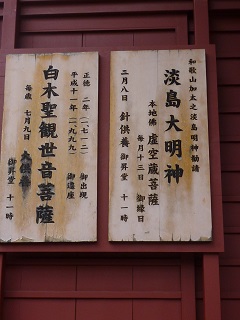 和歌山加太之淡島明神勧請
淡島大明神
本地佛 虚空蔵菩薩
毎月十三日 御縁日
二月八日 針供養 御昇堂 十一時
正徳 二年(一七一二) 御出現
平成十一年(一九九九) 御遷座
白木聖観世音菩薩
毎歳 七月九日 大供養 御昇堂 十一時